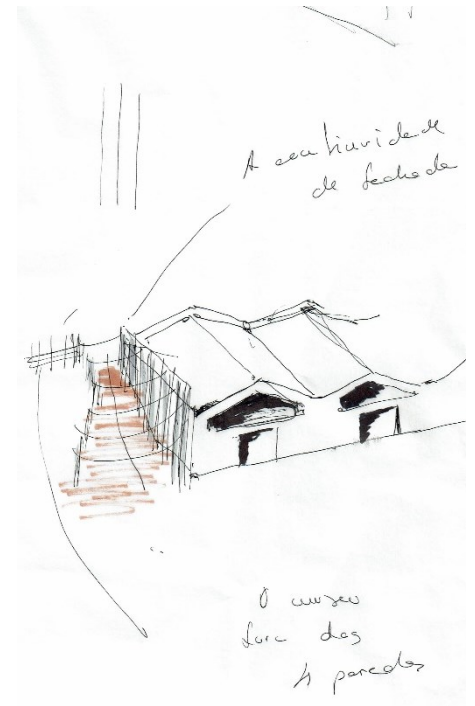 A continuidade
de fachada
O museu
fora das
4 paredes